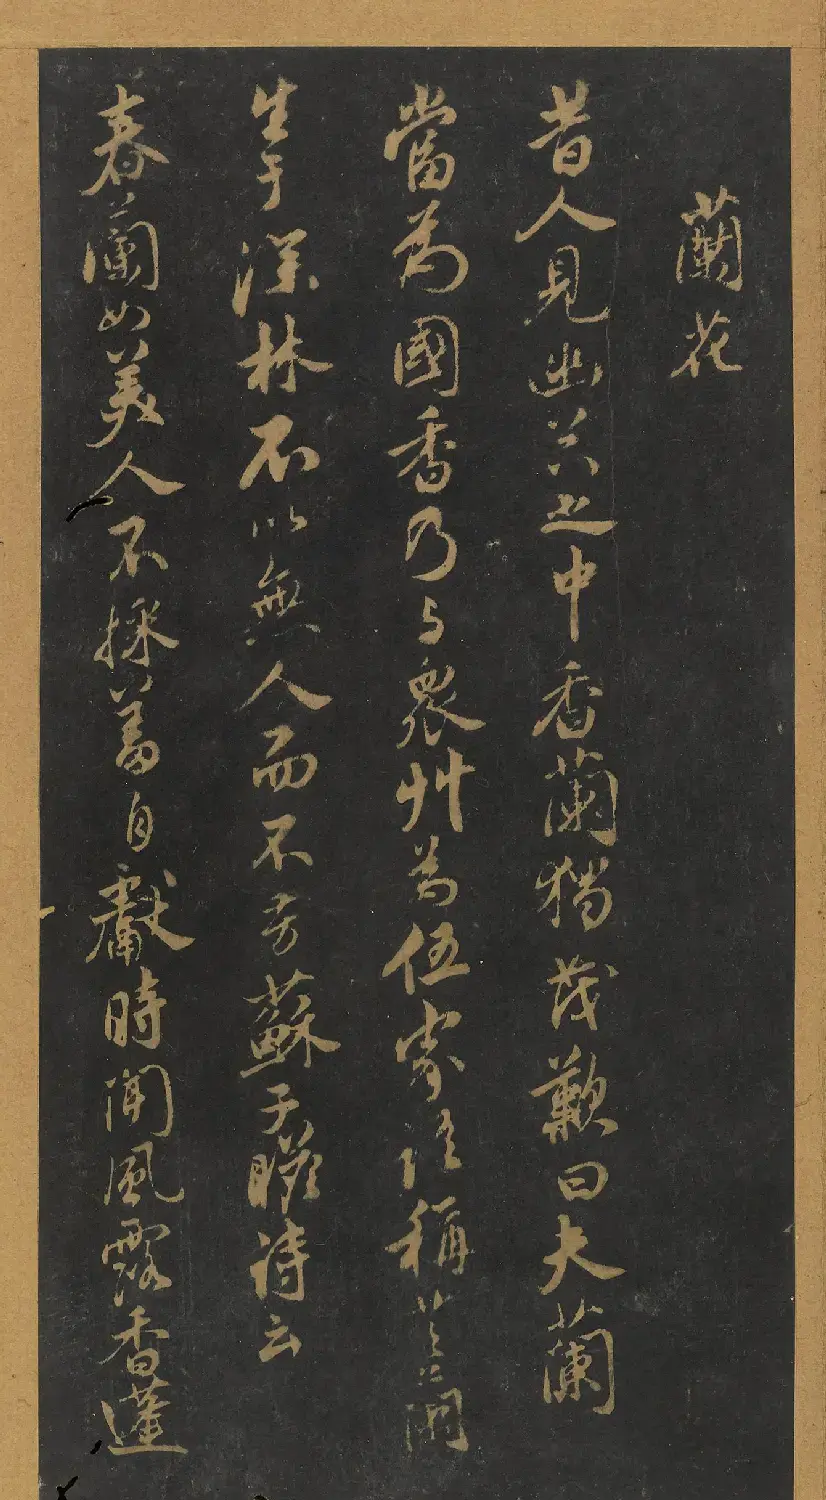 蘭花
昔人見幽谷之中香蘭獨茂歎曰夫蘭
當為國香乃与衆艸為伍家語稱芝蘭
生于深林不以無人而不芳蘇子瞻詩云
春蘭如美人不採羞自獻時聞風露香蓬